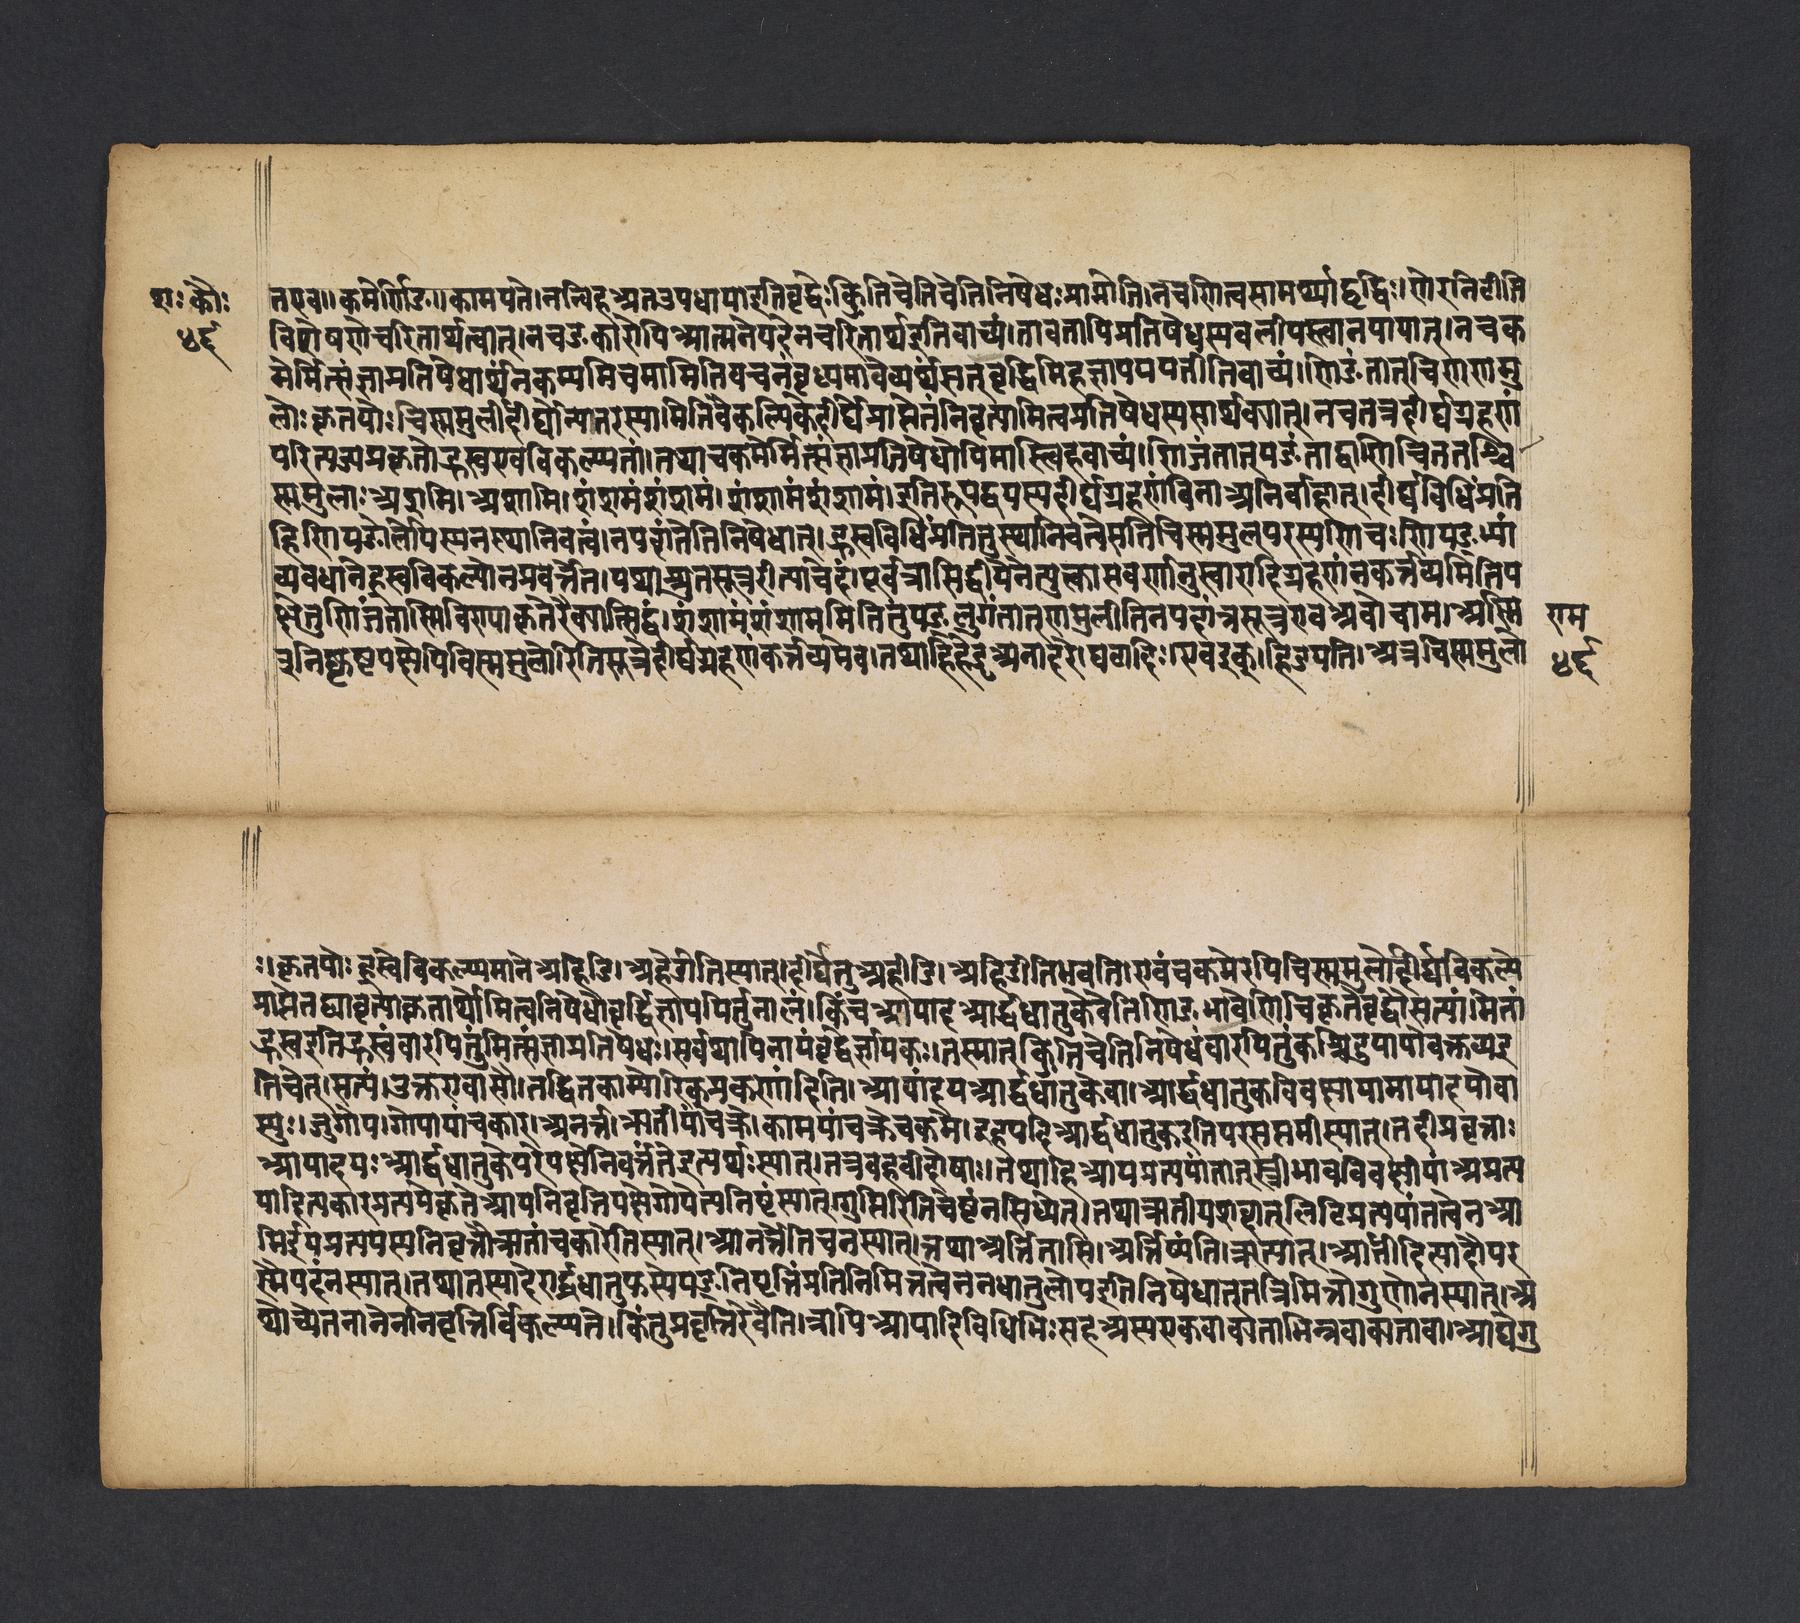 शः कौः
४६
तएव॥कमेर्णिङ्॥कामयते।नन्विहअतउपधायाइतिवृद्धेःक्ङितिचेतिचेतिनिषेधःप्राप्नोति।नचणित्वसामर्थ्याद्वृद्धिः।णेरनिटीति
विशेषणेचरितार्थत्वात्।नचङकारोपिआत्मनेपदेनचरितार्थइतिवाच्यं।तावतापिप्रतिषेधस्यबलीयस्त्वानपायात्।नचक
मेर्मित्संज्ञाप्रतिषेधार्थंनकम्यमिचमामितिवचनंवृध्यभावेव्यर्थंसतवृद्धिमिहज्ञापयतीतिवाच्यं।णिङंतात्चिण्णमु
लोःकृतयोःचिण्णमुलोर्दीर्घोन्यातरस्यामितिवैकल्पिकेदीर्घेप्राप्तेतंनिवृत्यामित्वप्रतिषेधस्यसार्थक्यात्।नचतत्रदीर्घग्रहणं
परित्यज्यप्रकृतोह्रस्वएवविकल्प्यतां।तथाचकमेर्मित्संज्ञाप्रतिषेधोपिमास्त्विहवाच्यं।णिजंतात्यङंताद्वाणिचिततश्चि
ण्णमुलोःअशमि।अशामि।शंशमंशंशमं।शंशामंशंशामं।इतिरूपद्वयस्यदीर्घग्रहणंविनाअनिर्वाहात्।दीर्घविधिंप्रति
हिणियङोर्लोपस्यनस्थानिवत्वं।नपदांतेतिनिषेधात्।ह्रस्वविधिंप्रतितुस्थानिवत्वेसतिचिण्णमुल्परस्यणिचःणियङ्भ्यां
व्यवधानेह्रस्वविकल्पोनप्रवर्त्तेत।यथाश्रुतसूत्ररीत्याचेदं।पूर्वत्रासिद्धीयेनेत्युत्कासवर्णानुस्वारादिग्रहणंनकर्त्तव्यमितिप
क्षेतुणिजंताण्णिचिण्याकृतेरैक्यात्सिद्धं।शंशामंशंशाममितितुयङ्लुगंतात्णमुलीतिनपदांतसूत्रएवअवोचाम।अस्मि
न्नुत्कृष्टपक्षेपिचिण्णमुलोरितिसूत्रेदीर्घग्रहणंकर्त्तव्यमेव।तथाहिहेडृअनादरे।घटादिः।एचइक्।हिडयति।अत्रचिण्णमुलो
राम
४६
ः।कृतयोःह्रस्वेविकल्प्यमानेअहिडि।अहेडीतिस्यात्।दीर्घेतुअहीडि।अहिडीतिभवति।एवंचकमेरपिचिण्णमुलोर्दीर्घविकल्पे
प्राप्तेतद्व्यावृत्याकृतार्थोमित्वनिषेधोवृद्धिंज्ञापयितुंनालं।किंचआयादयआर्द्धधातुकेवेतिणिङभावेणिचिकृतेवृद्धौसत्यांमितां
ह्रस्वइतिह्रस्वंवारयितुंमित्संज्ञाप्रतिषेधः।सर्वथापिनायंवृद्धेर्ज्ञापकः।तस्मात्क्ङितिचेतिनिषेधंवारयितुंकश्चिदुपायोवक्तव्यइ
तिचेत्।सत्यं।उक्तएवासौ।तद्धितकाम्योरिक्प्रकरणादिति।आयादयआर्द्धधातुकेवा।आर्द्धधातुकविवक्षायामायादयोवा
स्युः।जुगोप।गोपायांचकार।आनर्त्त।ऋतीयांचक्रे।कामयांचक्रेचकमे।इहयदिआर्द्धधातुकइतिपरसप्तमीस्यात्।तर्हीप्रवृत्ताः
आयादयःआर्द्धधातुकेपरेपक्षेनिवर्त्तंतेइत्यर्थःस्यात्।तत्रबहवोदोषाः।तथाहिआयप्रत्ययांतात्स्त्रीभावविवक्षायांअप्रत्य
यादित्यकारप्रत्ययेकृतेआयनिवृत्तिपक्षेगोपेत्यनिष्टंस्यात्।गुप्तिरितिचेष्टंनसिध्येत्।तथाऋतीयशब्दात्लिटिप्रत्ययांतत्वेनआ
मिईयप्रत्ययस्यनिवृत्तौऋतांचकारेतिस्यात्।आनर्त्तेतिचनस्यात्।तथाअर्त्तितासि।अर्त्तिष्यंति।ऋत्यात्।आर्तीदित्यादौपर
स्मैपदंनस्यात्।तथातस्यादेरार्द्धधातुकस्येयङ्निवृत्तिंप्रतिनिमित्तत्वेननधातुलोपइतिनिषेधात्तन्निमित्तोगुणोनस्यात्।अ
थोच्येतनानेननिवृत्तिर्विकल्प्यते।किंतुप्रवृत्तिरेवेति।त्रापिआयादिविधिभिःसहअस्यएकवाक्यताभिन्नवाक्यतावा।आद्येगु